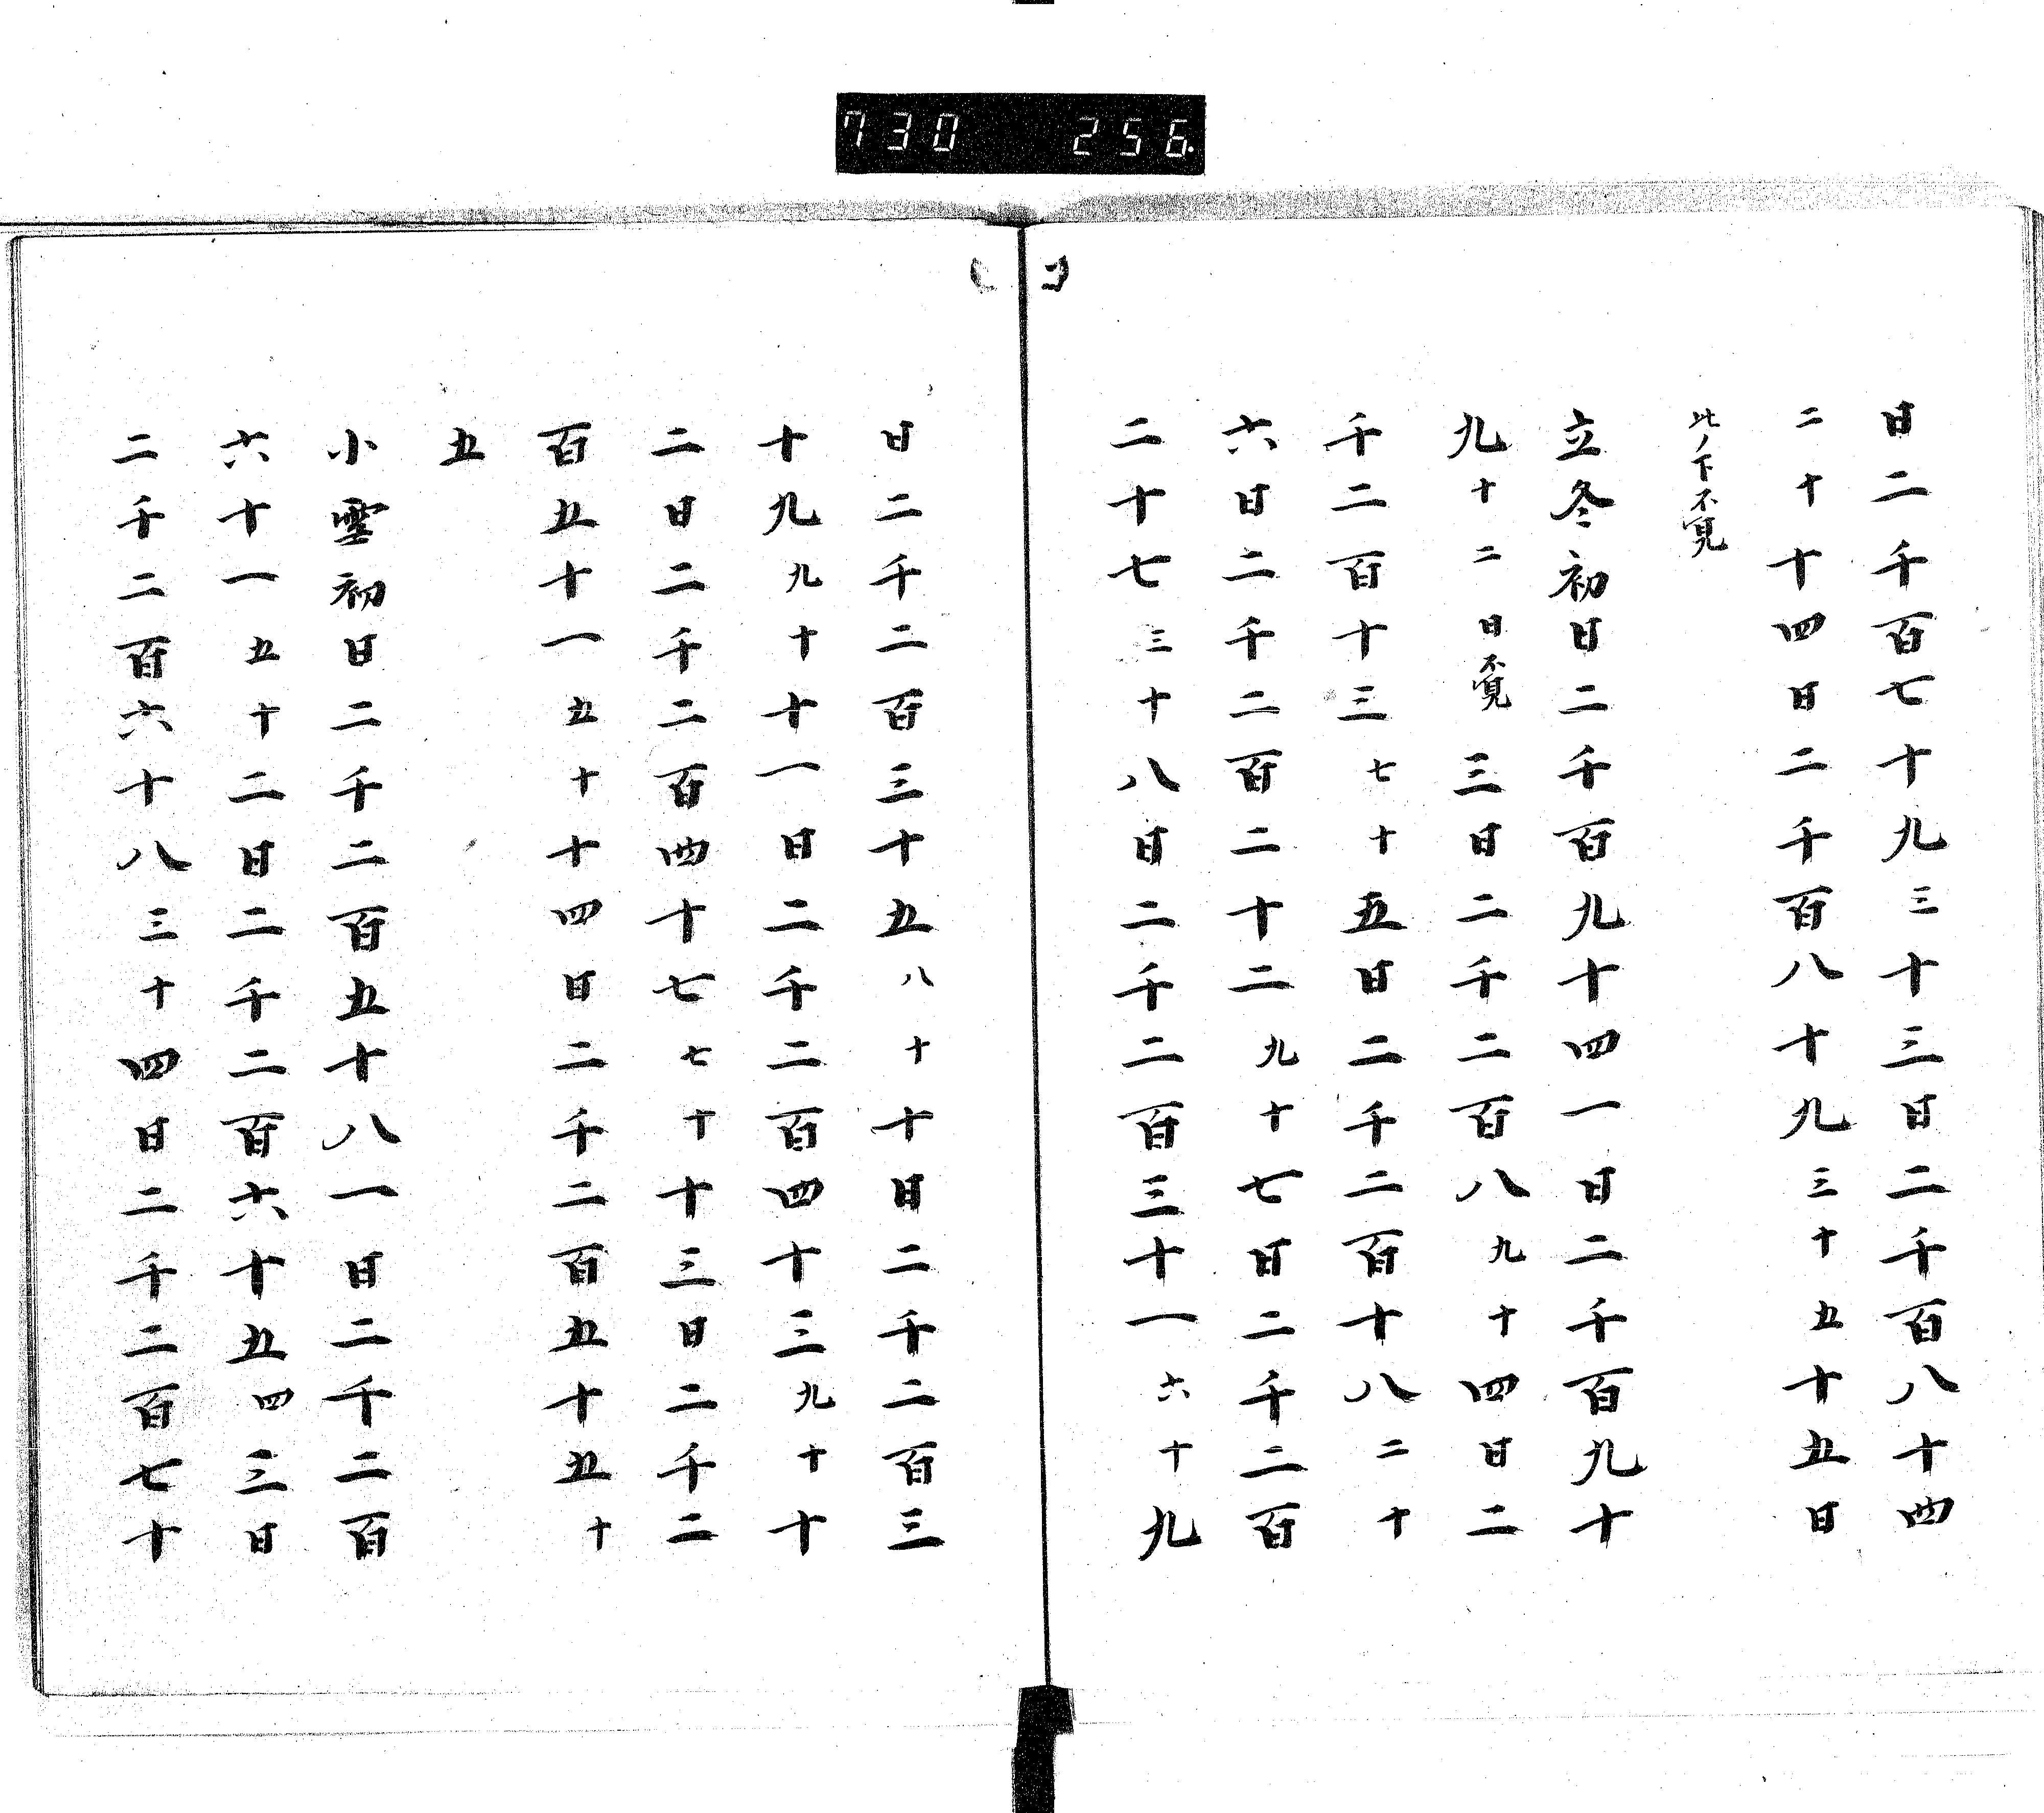 730 256.
日二千百七十九三十三日二千百八十四
二十十四日二千百八十九三十五十五日
此ノ下不覚
立冬初日二千百九十四一日二千百九十
九十二日不覚三日二千二百八九十四日二
千二百十三七十五日二千二百十八二十
六日二千二百二十二九十七日二千二百
二十七三十八日二千二百三十一六十九
日二千二百三十五八十十日二千二百三
十九九十十一日二千二百四十三九十十
二日二千二百四十七七十十三日二千二
百五十一五十十四日二千二百五十五十
五
小雪初日二千二百五十八一日二千二百
六十一五十二日二千二百六十五四三日
二千二百六十八三十四日二千二百七十